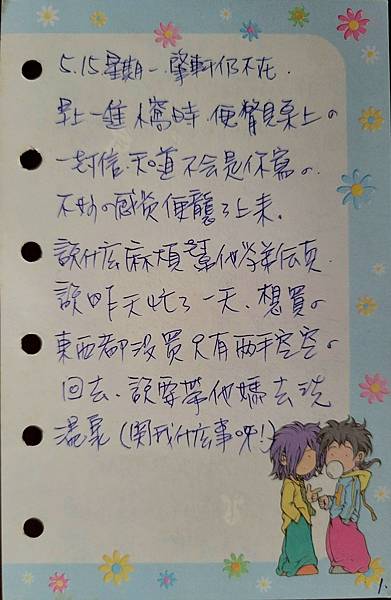 5.15星期一.肇軒仍不在.
早上一進窩時.便瞥見桌上の
一封信.知道不会是你寫の.
不妙の感覚便襲了上来.
說什么麻煩幫他
說昨天忙了一天.想買の
東西都沒買只有兩手空空の
回去.說要帶他媽去洗
溫泉(関我什么事呀!)
1.